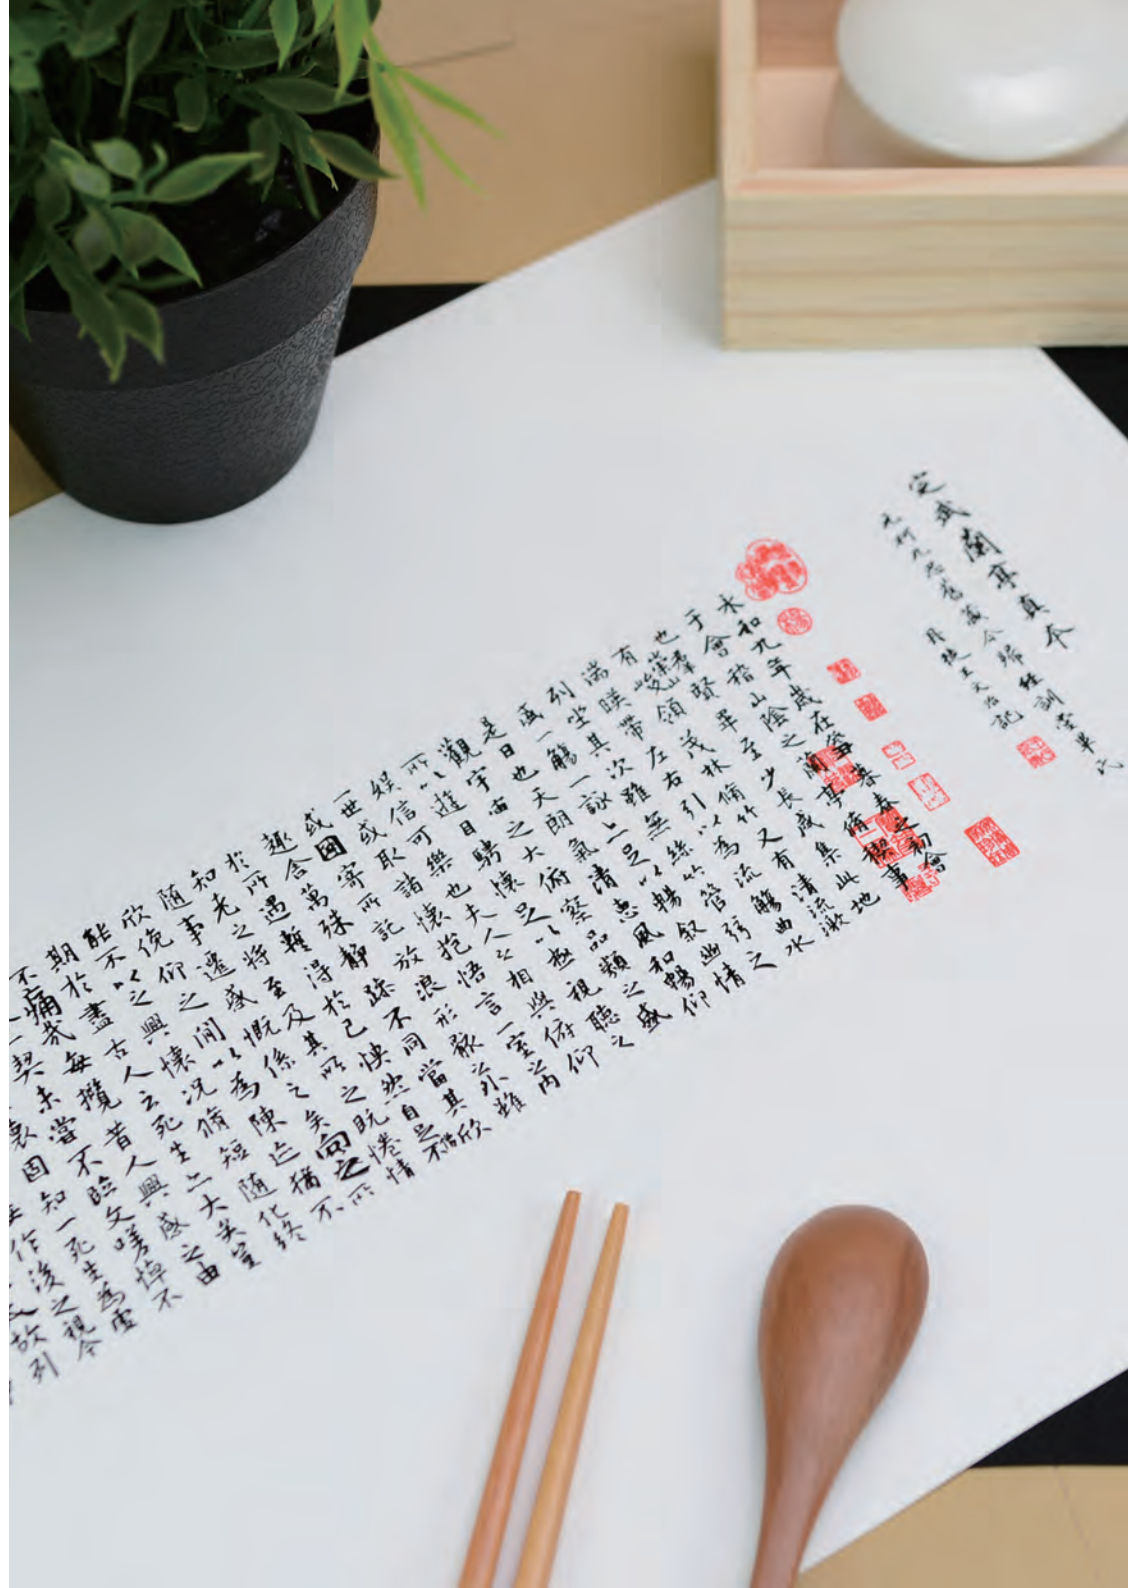 定武蘭亭真本
元柯九思舊藏今歸經訓堂畢氏
丹徒王文治記
永和九年歲在癸丑暮春之初會
于會稽山陰之蘭亭脩稧事
也羣賢畢至少長咸集此地
有崇山峻領茂林脩竹又有清流激
湍暎帶左右引以為流觴曲水
列坐其次雖無絲竹管弦之
盛一觴一詠亦足以暢敘幽情
是日也天朗氣清惠風和暢仰
觀宇宙之大俯察品類之盛
所以遊目騁懷足以極視聽之
娛信可樂也夫人之相與俯仰
一世或取諸懷抱悟言一室之內
或因寄所託放浪形骸之外雖
趣舍萬殊靜躁不同當其欣
於所遇蹔得於己怏然自足不
知老之將至及其所之既惓情
隨事遷感慨係之矣向之所
欣俛仰之間以為陳迹猶不
能不以之興懷況脩短隨化終
期於盡古人云死生亦大矣豈
不痛哉每攬昔人興感之由
一契未嘗不臨文嗟悼不
懷固知一死生為虛
作後之視今
故列